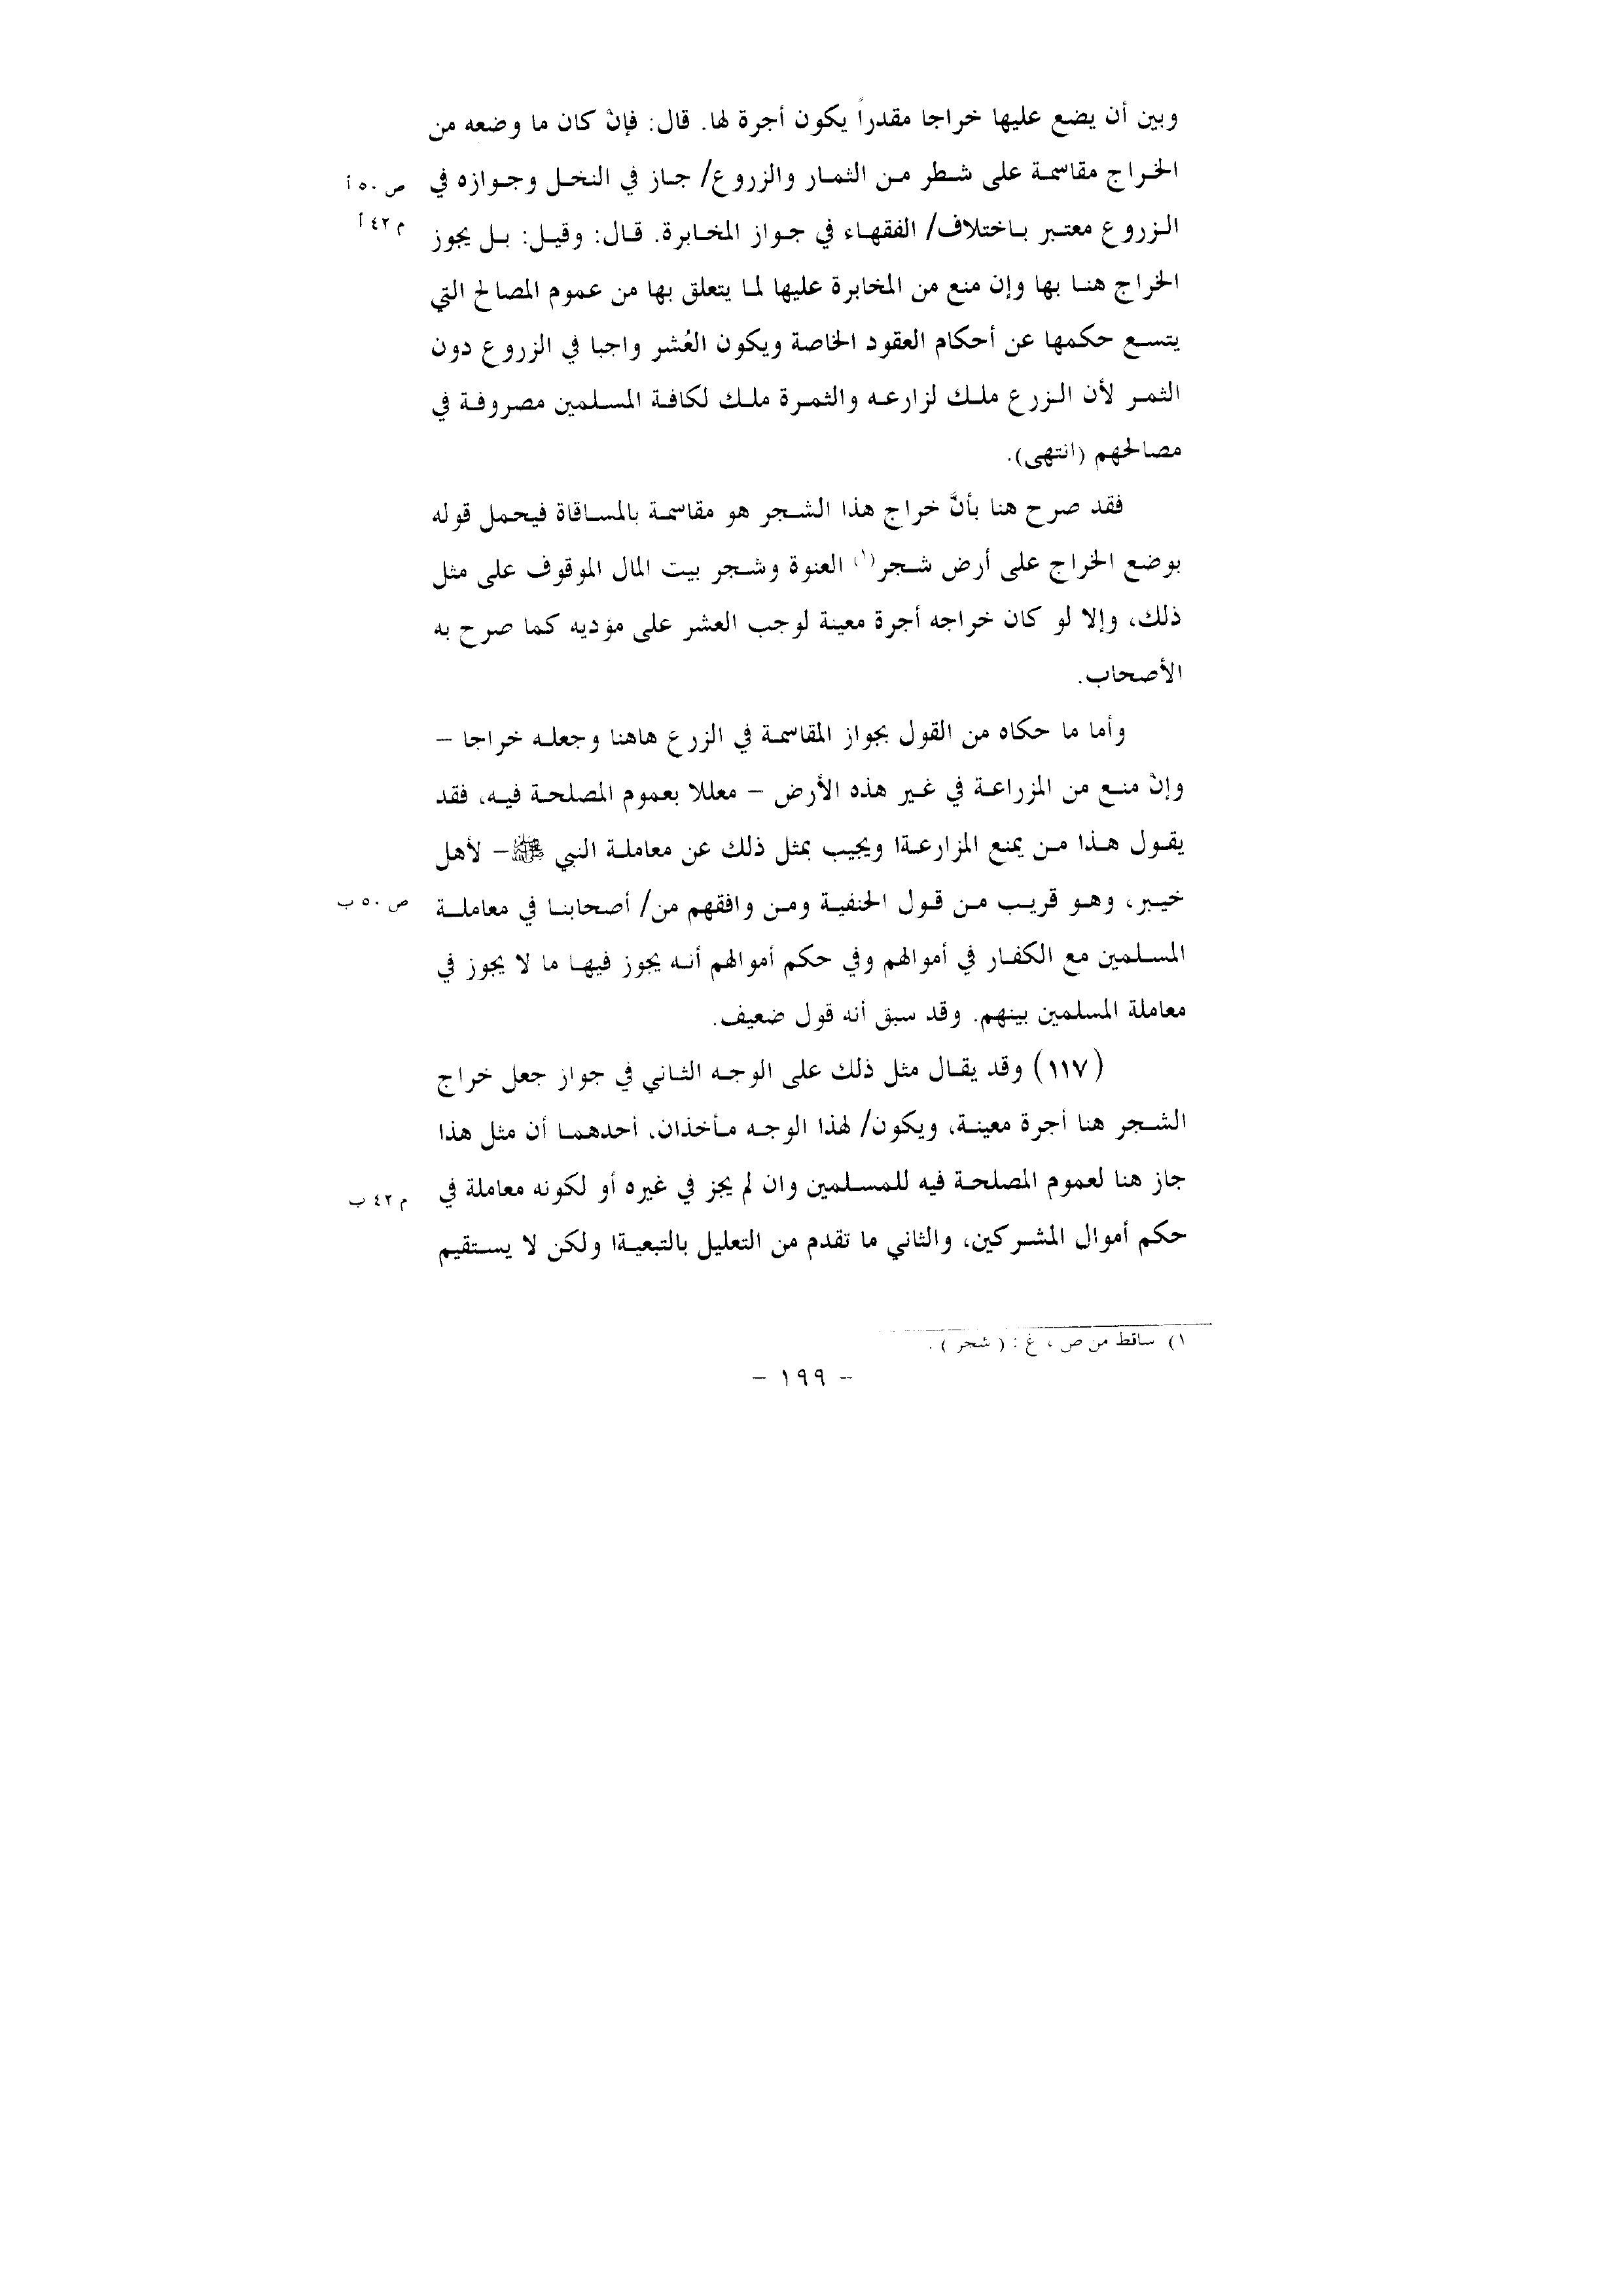 وبين أن يضع عليها خراجا مقدراً يكون أجرة لها. قال: فإنْ كان ما وضعه من
الخراج مقاسمة على شطر من الثمار والزروع/ جاز في النخل وجوازه في
ص ٥٠ أ
الزروع معتبر باختلاف/ الفقهاء في جواز المخابرة. قال: وقيل: بل يجوز
م ٤٢ أ
الخراج هنا بها وإن منع من المخابرة عليها لما يتعلق بها من عموم المصالح التي
يتسع حكمها عن أحكام العقود الخاصة ويكون العُشر واجبا في الزروع دون
الثمر لأن الزرع ملك لزارعه والثمرة ملك لكافة المسلمين مصروفة في
مصالحهم (انتهى).
فقد صرح هنا بأنَّ خراج هذا الشجر هو مقاسمة بالمساقاة فيحمل قوله
بوضع الخراج على أرض شجر(١) العنوة وشجر بيت المال الموقوف على مثل
ذلك، وإلا لو كان خراجه أجرة معينة لوجب العشر على مؤديه كما صرح به
الأصحاب.
وأما ما حكاه من القول بجواز المقاسمة في الزرع هاهنا وجعله خراجا –
وإنْ منع من المزراعة في غير هذه الأرض – معللا بعموم المصلحة فيه، فقد
يقول هذا من يمنع المزارعة! ويجيب بمثل ذلك عن معاملة النبي ﷺ– لأهل
خيبر، وهو قريب من قول الحنفية ومن وافقهم من/ أصحابنا في معاملة
ص ٥٠ ب
المسلمين مع الكفار في أموالهم وفي حكم أموالهم أنه يجوز فيها ما لا يجوز في
معاملة المسلمين بينهم. وقد سبق أنه قول ضعيف.
(١١٧) وقد يقال مثل ذلك على الوجه الثاني في جواز جعل خراج
الشجر هنا أجرة معينة، ويكون/ لهذا الوجه مأخذان، أحدهما أن مثل هذا
جاز هنا لعموم المصلحة فيه للمسلمين وان لم يجز في غيره أو لكونه معاملة في
م ٤٢ ب
حكم أموال المشركين، والثاني ما تقدم من التعليل بالتبعية! ولكن لا يستقيم
١) ساقط من ص ، غ : ( شجر ) .
– ١٩٩ –